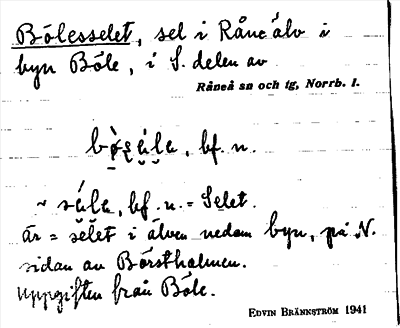 Bölesselet, sel i Råne älv i
byn Böle, i S. delen av
Råneå sn och tg, Norrb. l.
bf. n.
~ bf. n. = Selet.
är = selet i älven nedom byn, på N.
sidan av Börstholmen.
Uppgiften från Böle.
EDVIN BRÄNNSTRÖM 1941